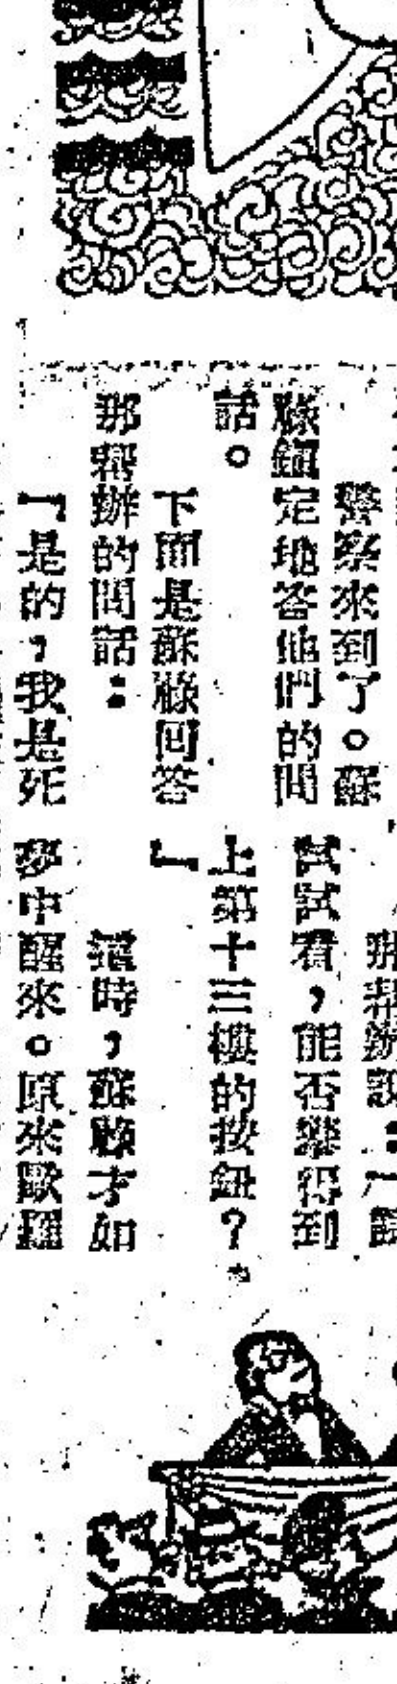 警察來到了。蘇
滕鎮定地答他們的問
話。
下面是蘇滕回答
那幫辦的問話：
「是的，我是死
那幫辦說：「請
試試看，能否舉得到
上第十三樓的按鈕？
」
這時，蘇滕才如
夢中醒來。原來歐羅